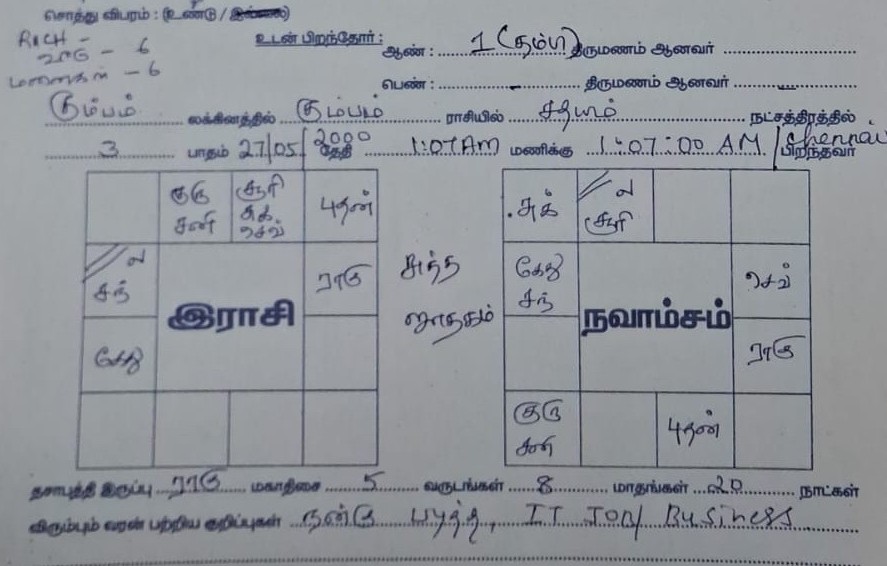 சொத்து விபரம் : (உண்டு / இல்லை)
RICH -
வீடு - 6
மனைகள் - 6
உடன் பிறந்தோர் :
ஆண் : 1 (தம்பி) திருமணம் ஆனவர்
பெண் : - திருமணம் ஆனவர் -
கும்பம் லக்கினத்தில் கும்பம் ராசியில் சதயம் நட்சத்திரத்தில்
3 பாதம் 27/05/2000 தேதி 1:07AM மணிக்கு 1:07:00 AM / Chennai பிறந்தவர்
குரு சனி
சூரி சுக் செவ்
புதன்
ல சந்
ராகு
கேது
இராசி
சுத்த ஜாதகம்
சுக்
ல சூரி
கேது சந்
செவ்
ராகு
குரு சனி
புதன்
நவாம்சம்
தசாபுத்தி இருப்பு ராகு மகாதிசை 5 வருடங்கள் 8 மாதங்கள் 20 நாட்கள்
விரும்பும் வரன் பற்றிய குறிப்புகள் நன்கு படித்த, IT JOB/ Business